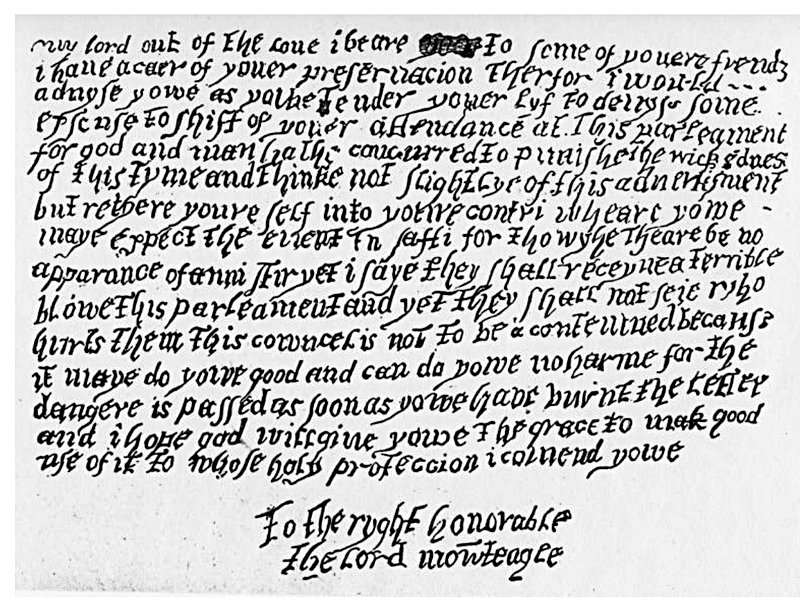 my lord out of the loue i beare to some of youere frends
i haue a caer of youer preseruacion therfor i would
aduyse yowe as yowe tender youer lyf to deuys some
exscuse to shift of youer attendance at this parleament
for god and man hathe concurred to punishe the wickednes
of this tyme and thinke not slightlye of this aduertisment
but retyere youre self into youre contri wheare yowe
maye expect the euent in safti for thowghe theare be no
apparance of anni stir yet i saye they shall receyue a terrible
blowe this parleament and yet they shall not seie who
hurts them this cowncel is not to be a contemned because
it maye do yowe good and can do yowe no harme for the
dangere is passed as soon as yowe have burnt the letter
and i hope god will giue yowe the grace to mak good
use of it to whose holy proteccion i comend yowe
To the ryght honorable
the lord mowteagle